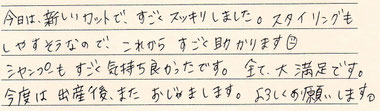 今日は、新しいカットで、すごくスッキリしました。スタイリングも
しやすそうなので、これから すごく助かります☺
シャンプーも すごく気持ち良かったです。全て、大満足です。
今度は出産後、また おじゃまします。よろしくお願いします。